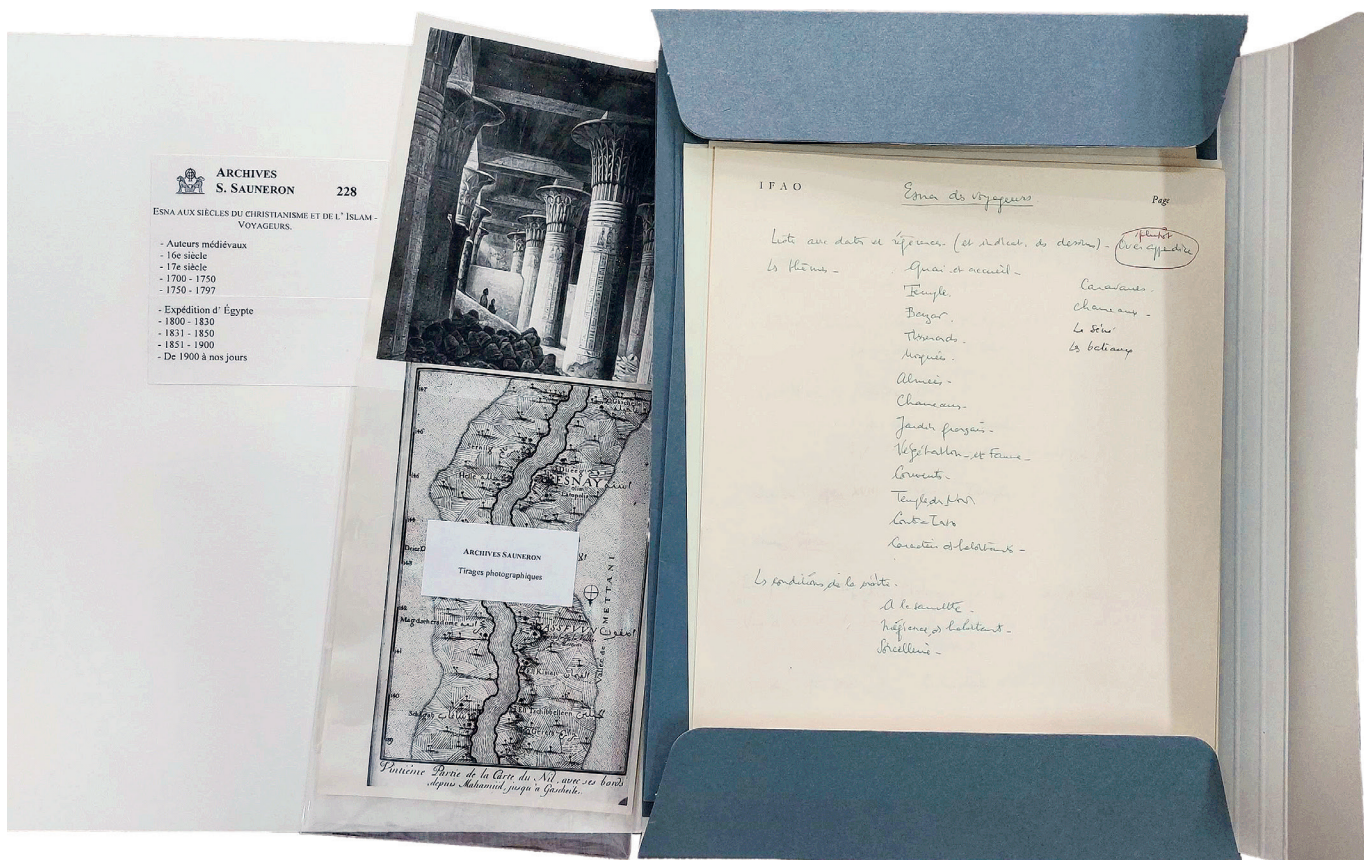 ARCHIVES
S. SAUNERON 228
ESNA AUX SIÈCLES DU CHRISTIANISME ET DE L' ISLAM -
VOYAGEURS.
- Auteurs médiévaux
- 16e siècle
- 17e siècle
- 1700 - 1750
- 1750 - 1797
- Expédition d' Égypte
- 1800 - 1830
- 1831 - 1850
- 1851 - 1900
- De 1900 à nos jours
ESNAY اسنه
ARCHIVES SAUNERON
Tirages photographiques
METTANI
Vallée de
Vintième Partie de la Carte du Nil, avec ses bords
depuis Mahamiid, jusqu'a Gascheile.
IFAO Esna des voyageurs Page
Liste avec dates et références (et indicat. des dessins) - plutôt
en appendice
Les thèmes - Quai et accueil -
Temple.
Bazar.
Mosquée.
Almées -
Chameaux -
Jardin français -
Végétation - et Faune -
Couvents -
Temple du Nord
Contra Esna
Caractère des habitants -
Caravanes -
chameaux -
Le Séné
Les bateaux
Les conditions de la visite.
A la sauvette -
Méfiance des habitants -
Sorcellerie -